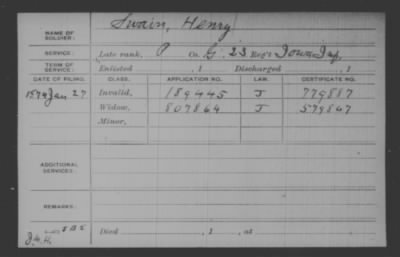 Swain, Henry
NAME OF SOLDIER:
SERVICE: Late rank, P Co. G, 23 Reg't Iowa Inf,
TERM OF SERVICE: Enlisted , 1 Discharged , 1
DATE OF FILING. CLASS. APPLICATION NO. LAW. CERTIFICATE NO.
1874 Jan 27 Invalid, 189445 J 779887
Widow, 807864 J 579847
Minor,
ADDITIONAL SERVICES:
REMARKS:
Died , 1 , at